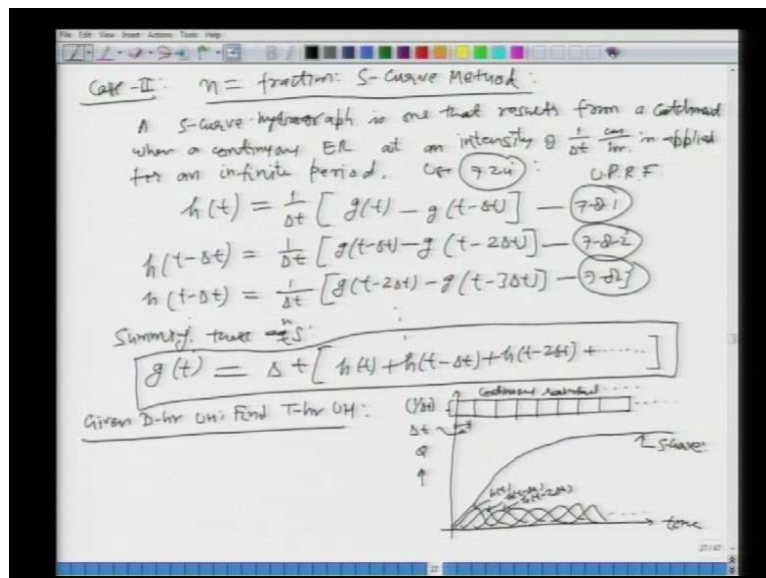 File Edit View Insert Actions Tools Help
Case-II: n = fraction: S-Curve Method:
A S-curve hydrograph is one that results from a catchment
when a continuous ER at an intensity of 1/Δt cm/hr. is applied
for an infinite period. Use 7.2.4: U.P.R.F.
h(t) = 1/Δt [g(t) - g(t-Δt)] — 7-8-1
h(t-Δt) = 1/Δt [g(t-Δt) - g(t-2Δt)] — 7-8-2
h(t-Δt) = 1/Δt [g(t-2Δt) - g(t-3Δt)] — 7-8-3
Summing these
g(t) = Δt [h(t) + h(t-Δt) + h(t-2Δt) + ......]
Given D-hr UH: Find T-hr UH:
(1/Δt) Continuous rainfall ....
Δt
Q
S-curve
h(t) h(t-Δt) h(t-2Δt)
time
27/47